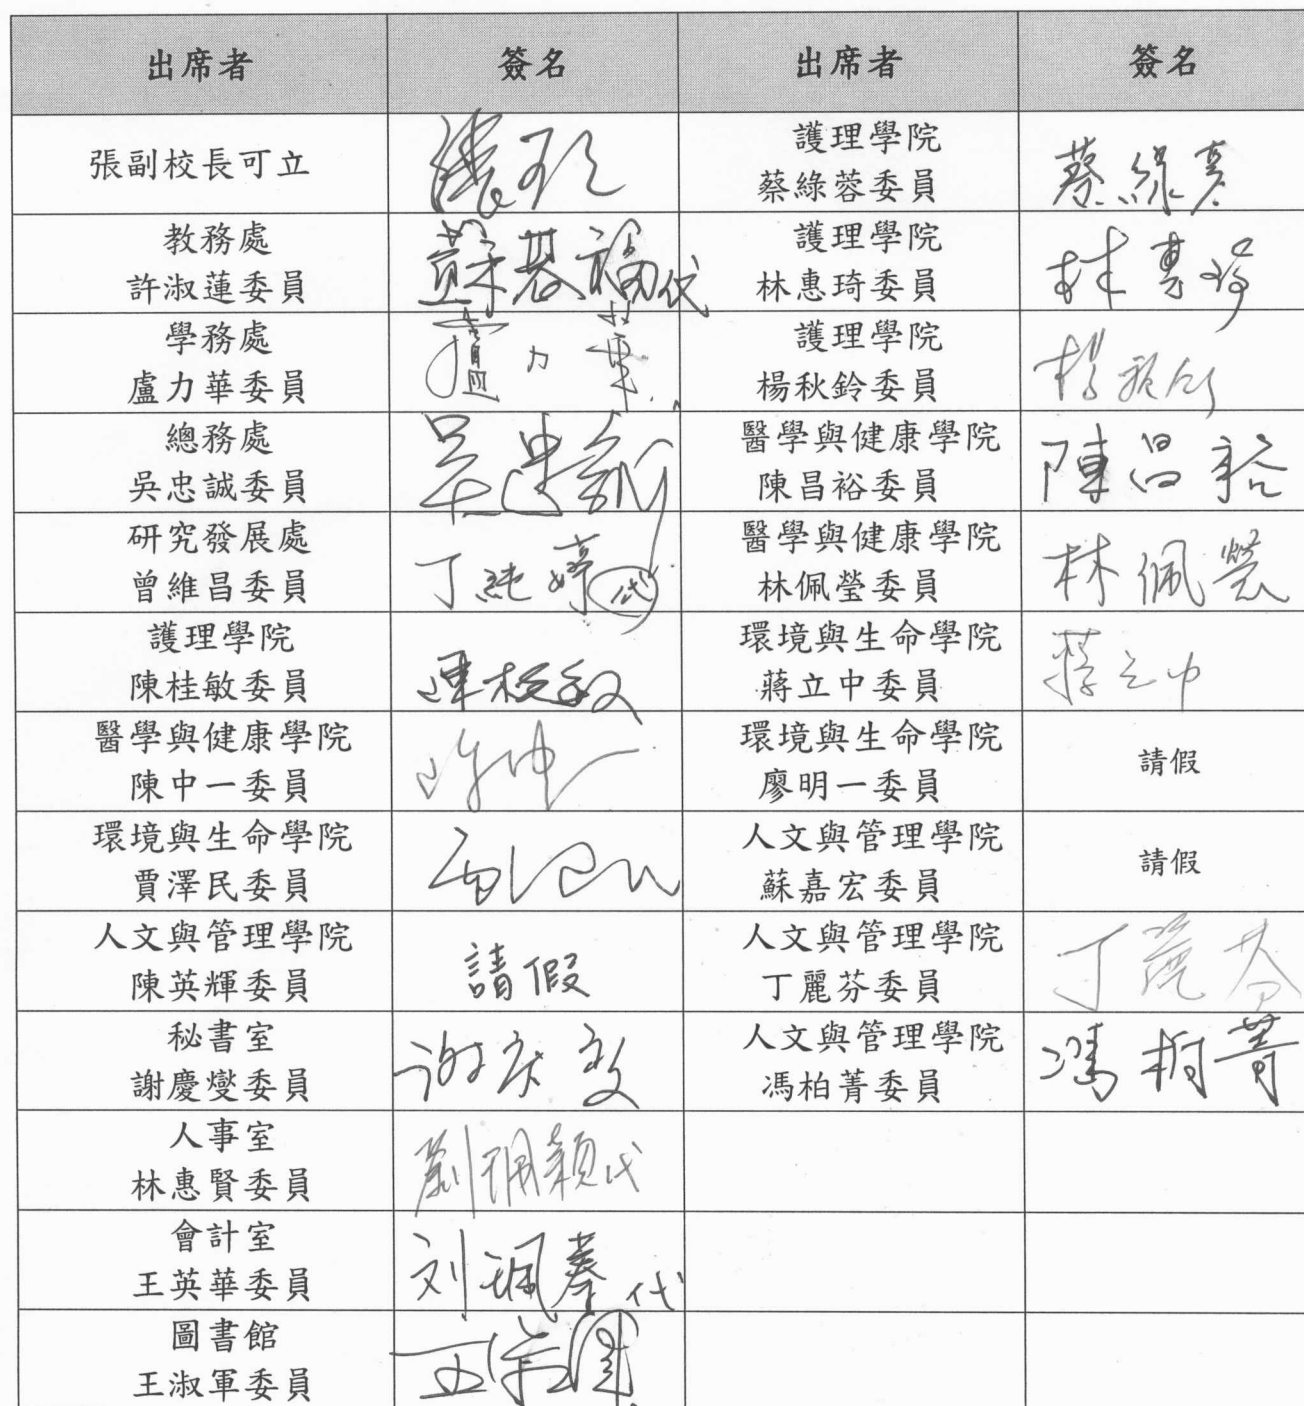 出席者 簽名 出席者 簽名
張副校長可立
護理學院
蔡綠蓉委員 蔡綠蓉
教務處
許淑蓮委員 蘇基福代
護理學院
林惠琦委員 林惠琦
學務處
盧力華委員 盧力華
護理學院
楊秋鈴委員 楊秋鈴
總務處
吳忠誠委員 吳忠誠
醫學與健康學院
陳昌裕委員 陳昌裕
研究發展處
曾維昌委員 丁純婷代
醫學與健康學院
林佩瑩委員 林佩瑩
護理學院
陳桂敏委員 陳桂敏
環境與生命學院
蔣立中委員 蔣立中
醫學與健康學院
陳中一委員 陳中一
環境與生命學院
廖明一委員 請假
環境與生命學院
賈澤民委員
人文與管理學院
蘇嘉宏委員 請假
人文與管理學院
陳英輝委員 請假
人文與管理學院
丁麗芬委員 丁麗芬
秘書室
謝慶燮委員
人文與管理學院
馮柏菁委員 馮柏菁
人事室
林惠賢委員
會計室
王英華委員
圖書館
王淑軍委員